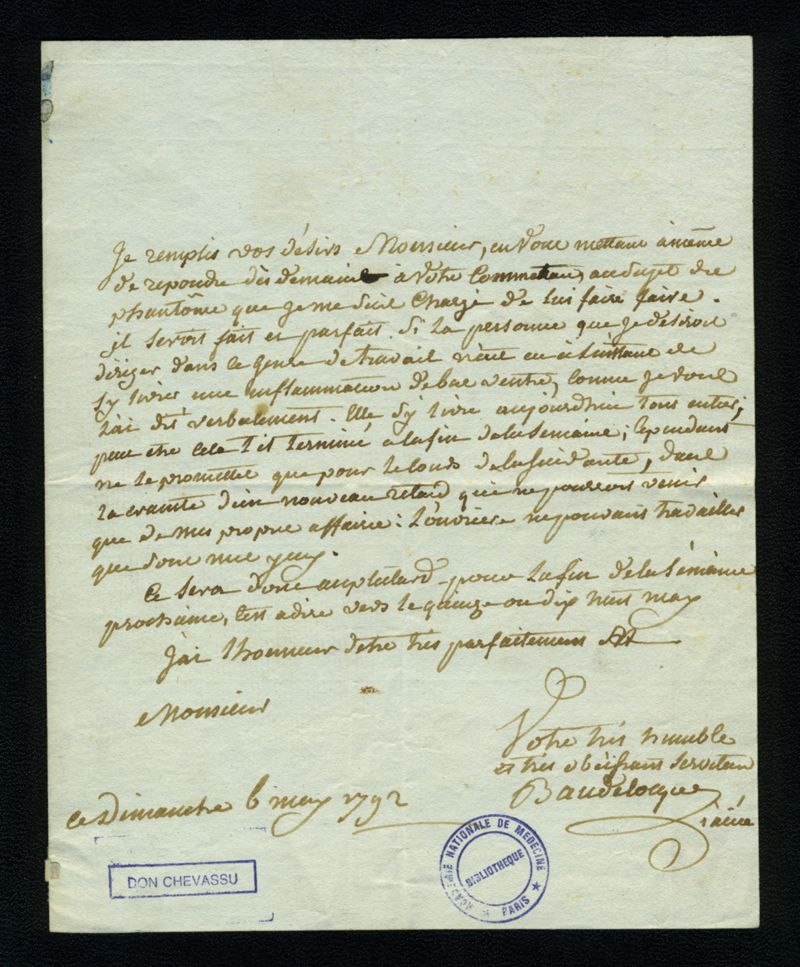 Je remplis vos désirs Monsieur, en vous mettant à même
de repondre dès demain à votre Commettant, au Sujet du
phantôme que je me suis Chargé de lui faire faire.
il seroit fait et parfait. Si la personne que je désirois
diriger dans ce genre de travail n'eut eu à l'instant de
s'y livrer une inflammation de bas ventre, comme je vous
l'ai dit verbalement. Elle s'y livre aujourdhui tout entier;
peut etre cela t'il terminé a la fin de la semaine; Cependant
ne le promettés que pour le cours de la suivante, dans
la crainte d'un nouveau retard qui ne pourroit venir
que de mes propre affaires: l'ouvriere ne pouvant travailler
que sous mes yeux.
Ce sera donc au plutard pour la fin de la Semaine
prochaine, C'est a dire vers le quinze ou dix huit may
J'ai l'honneur d'etre très parfaitement
Monsieur
Votre très humble
et très obéissant Serviteur
Baudelocque
l'ainé
ce Dimanche 6 may 1792
DON CHEVASSU
ACADEMIE NATIONALE DE MEDECINE
BIBLIOTHEQUE
PARIS